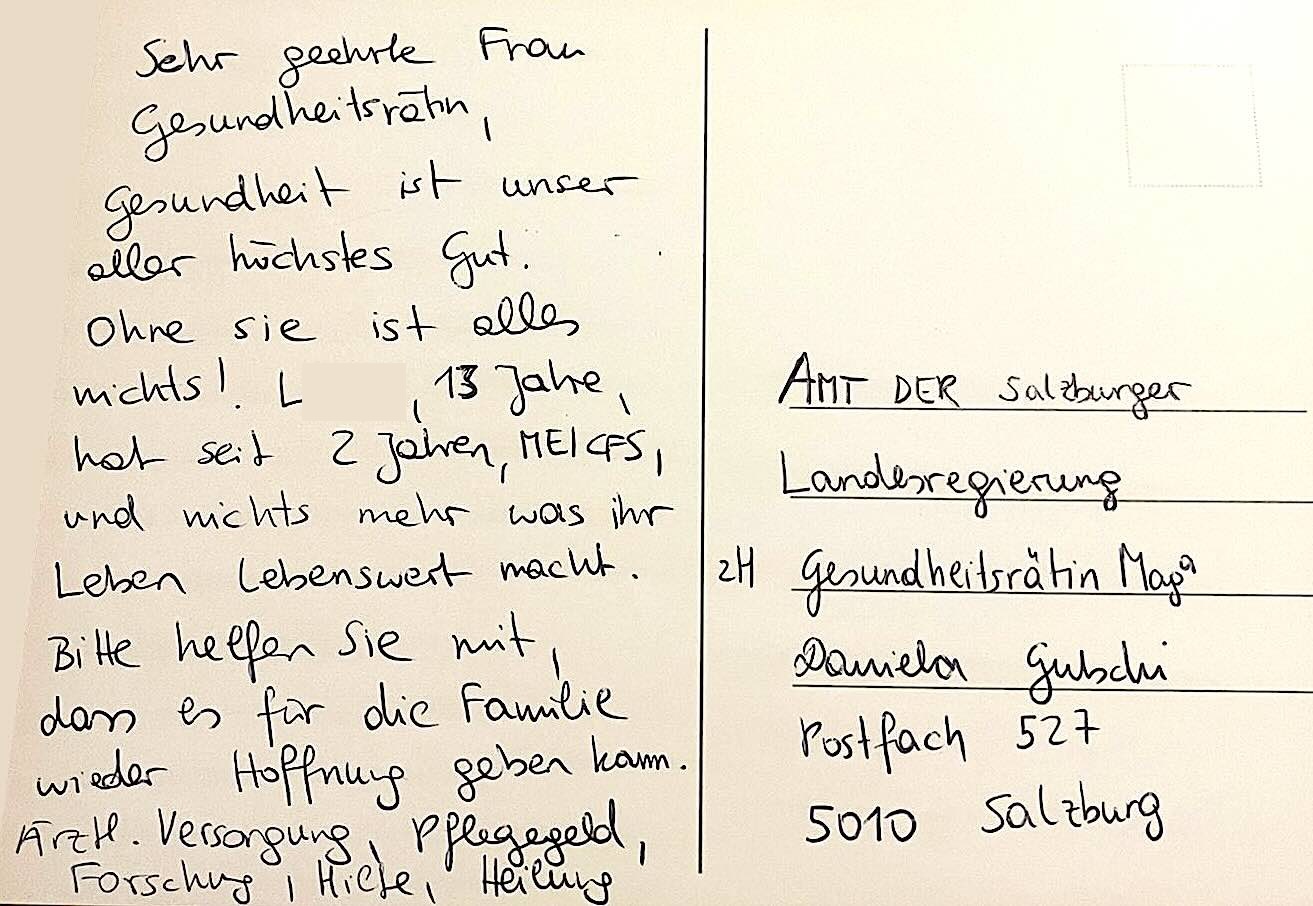 Sehr geehrte Frau
Gesundheitsrätin,
Gesundheit ist unser
aller höchstes Gut.
Ohne sie ist alles
nichts! L , 13 Jahre,
hat seit 2 Jahren, ME/CFS,
und nichts mehr was ihr
Leben lebenswert macht.
Bitte helfen Sie mit,
dass es für die Familie
wieder Hoffnung geben kann.
Ärztl. Versorgung, Pflegegeld,
Forschung, Hilfe, Heilung
AMT DER Salzburger
Landesregierung
zH Gesundheitsrätin Magª
Daniela Gutschi
Postfach 527
5010 Salzburg